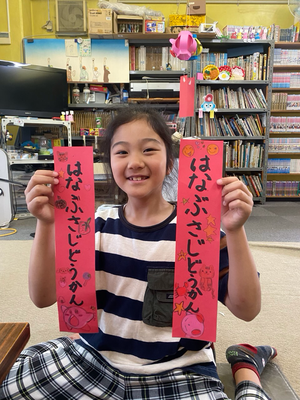 はなぶさじどうかん
はなぶさじどうかん